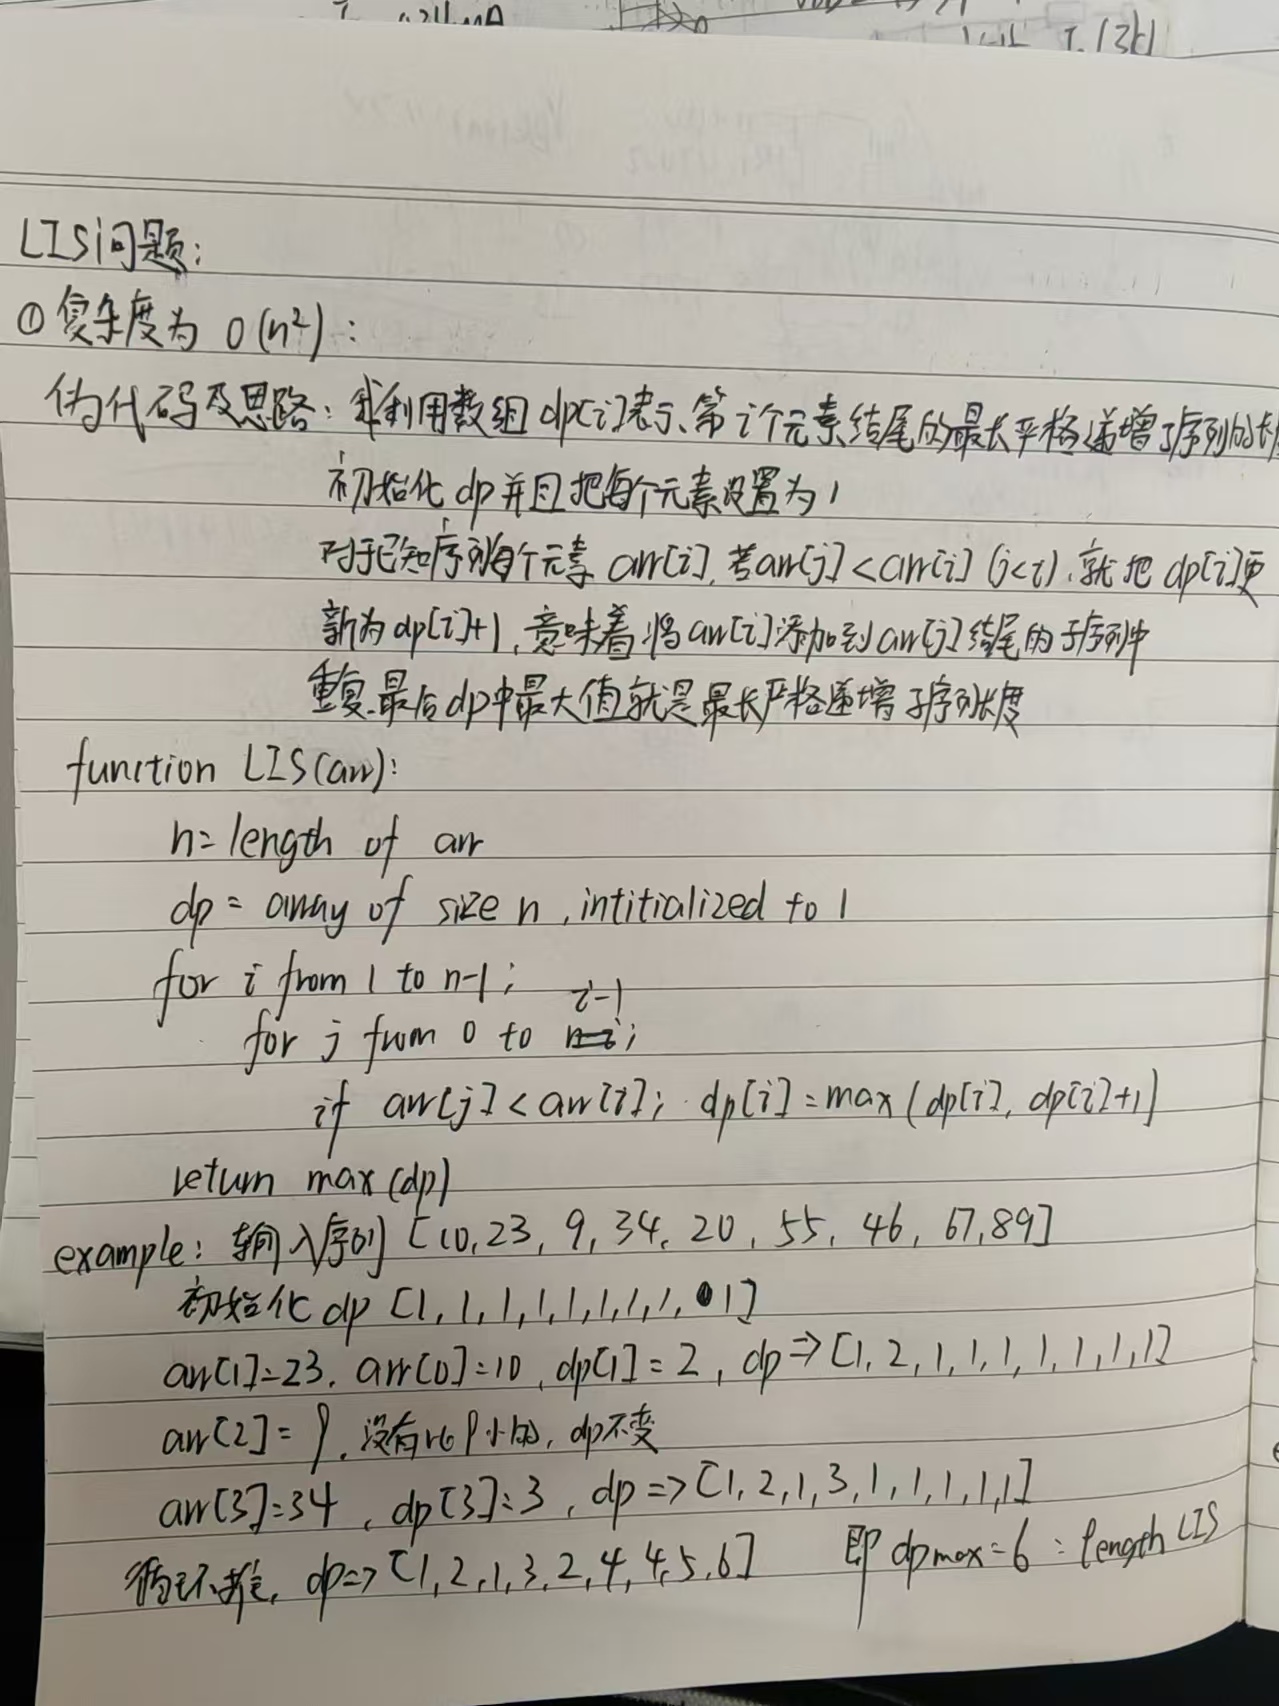 LIS问题:
① 复杂度为 O(n²):
伪代码及思路: 利用数组dp[i]表示第i个元素结尾的最长严格递增子序列的长
初始化dp并且把每个元素设置为1
对于已知序列每个元素 arr[i], 若arr[j]<arr[i] (j<i), 就把 dp[i]更
新为dp[i]+1, 意味着将arr[i]添加到arr[j]结尾的子序列中
重复.最后dp中最大值就是最长严格递增子序列长度
function LIS(arr):
n=length of arr
dp = array of size n, intitialized to 1
for i from 1 to n-1;
for j from 0 to i-1;
if arr[j]<arr[i]; dp[i]=max(dp[i], dp[i]+1)
return max(dp)
example: 输入序列 [10, 23, 9, 34, 20, 55, 46, 67, 89]
初始化 dp [1, 1, 1, 1, 1, 1, 1, 1, 1]
arr[1]=23, arr[0]=10, dp[1]=2, dp⇒[1, 2, 1, 1, 1, 1, 1, 1, 1]
arr[2]=9, 没有比9小的, dp不变
arr[3]=34, dp[3]=3, dp=>[1, 2, 1, 3, 1, 1, 1, 1, 1]
循环推, dp=>[1, 2, 1, 3, 2, 4, 4, 5, 6] 即 dpmax=6 = length LIS